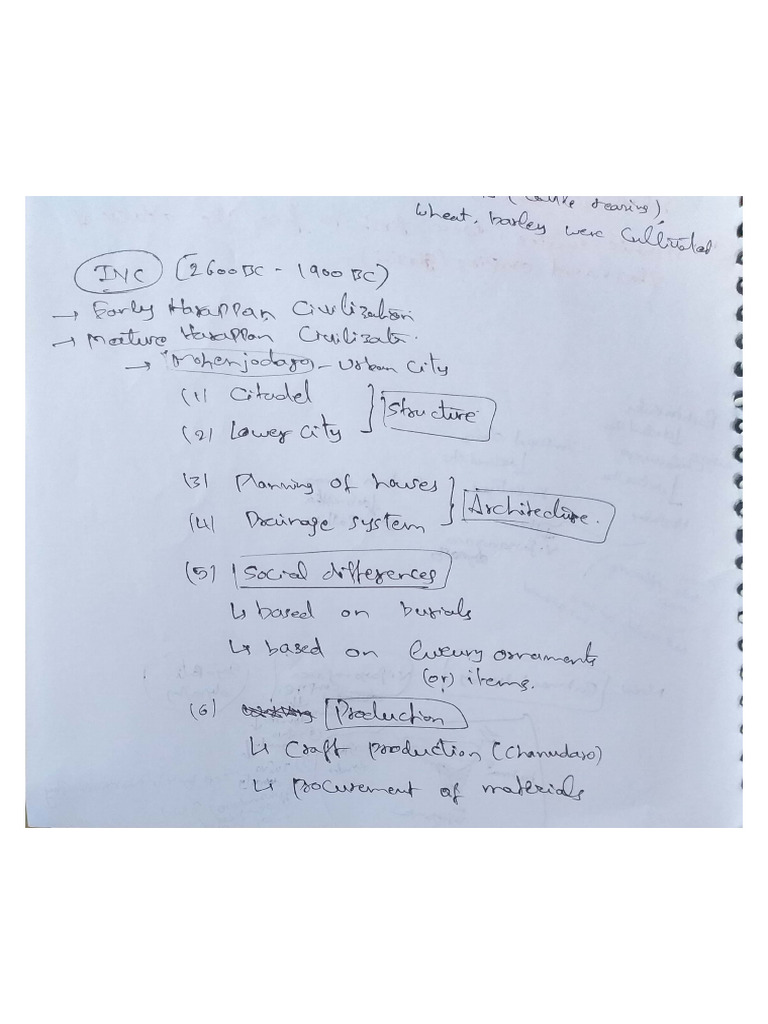 (Cattle rearing),
Wheat, barley were Cultivated
IVC (2600BC - 1900 BC)
→ Early Harappan Civilization
→ Mature Harappan Civilizatn.
→ Mohenjodaro - Urban City
(1) Citadel
(2) Lower City } Structure
(3) Planning of houses
(4) Drainage system } Architecture.
(5) Social differences
↳ based on burials
↳ based on luxury ornaments
(or) items.
(6) Production
↳ Craft production (Chanudaro)
↳ procurement of materials